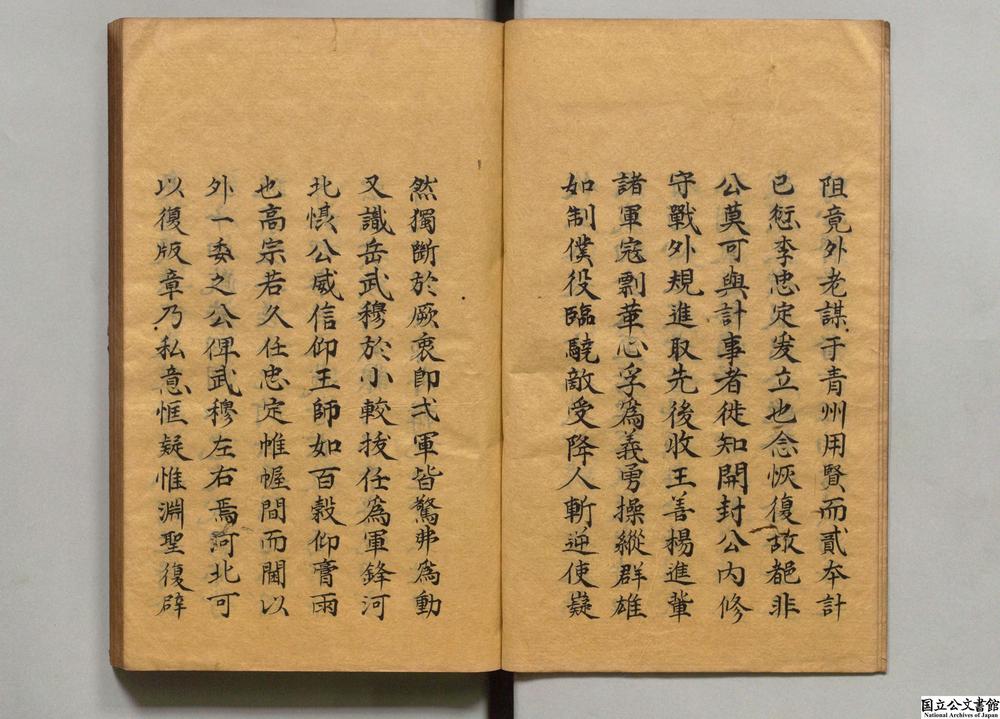 阻竟外老謀于青州用賢而貳本計
已愆李忠定爰立也念恢復故都非
公莫可與計事者徙知開封公內修
守戰外規進取先後收王善楊進輩
諸軍寇剽革心孚為義勇操縱群雄
如制僕役臨驍敵受降人斬迎使嶷
然獨斷於厥衷即弍軍皆驚弗為動
又識岳武穆於小較拔任為軍鋒河
北慑公威信仰王師如百穀仰膏雨
也高宗若久任忠定帷幄間而閫以
外一委之公俾武穆左右焉河北可
以復版章乃私意恇疑惟淵聖復辟
国立公文書館
National Archives of Japan